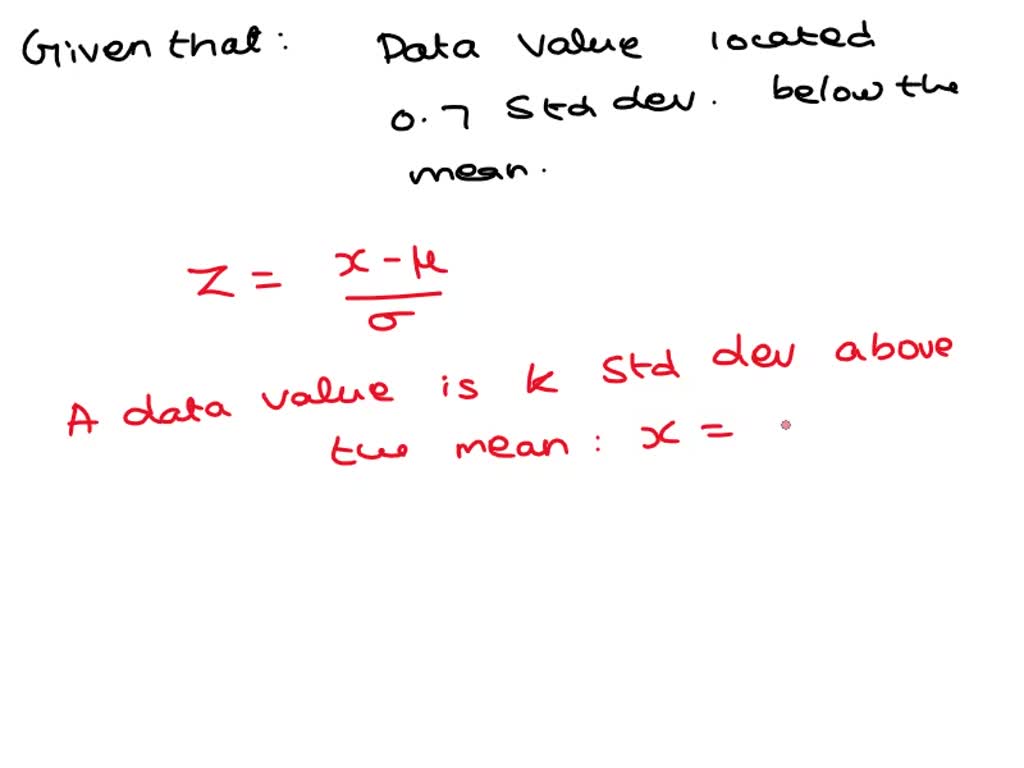 Given that: Data value located
0.7 Std dev. below the
mean.
Z = x - μ / σ
A data value is k Std dev above
the mean: x =